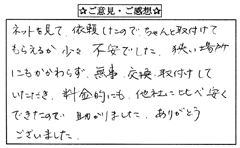 ☆ご意見・ご感想☆
ネットを見て、依頼したので、ちゃんと取付けて
もらえるか少々不安でした。狭い場所
にもかかわらず、無事、交換、取付けして
いただき、料金的にも、他社に比べ安く
できたので助かりました。ありがとう
ございました。